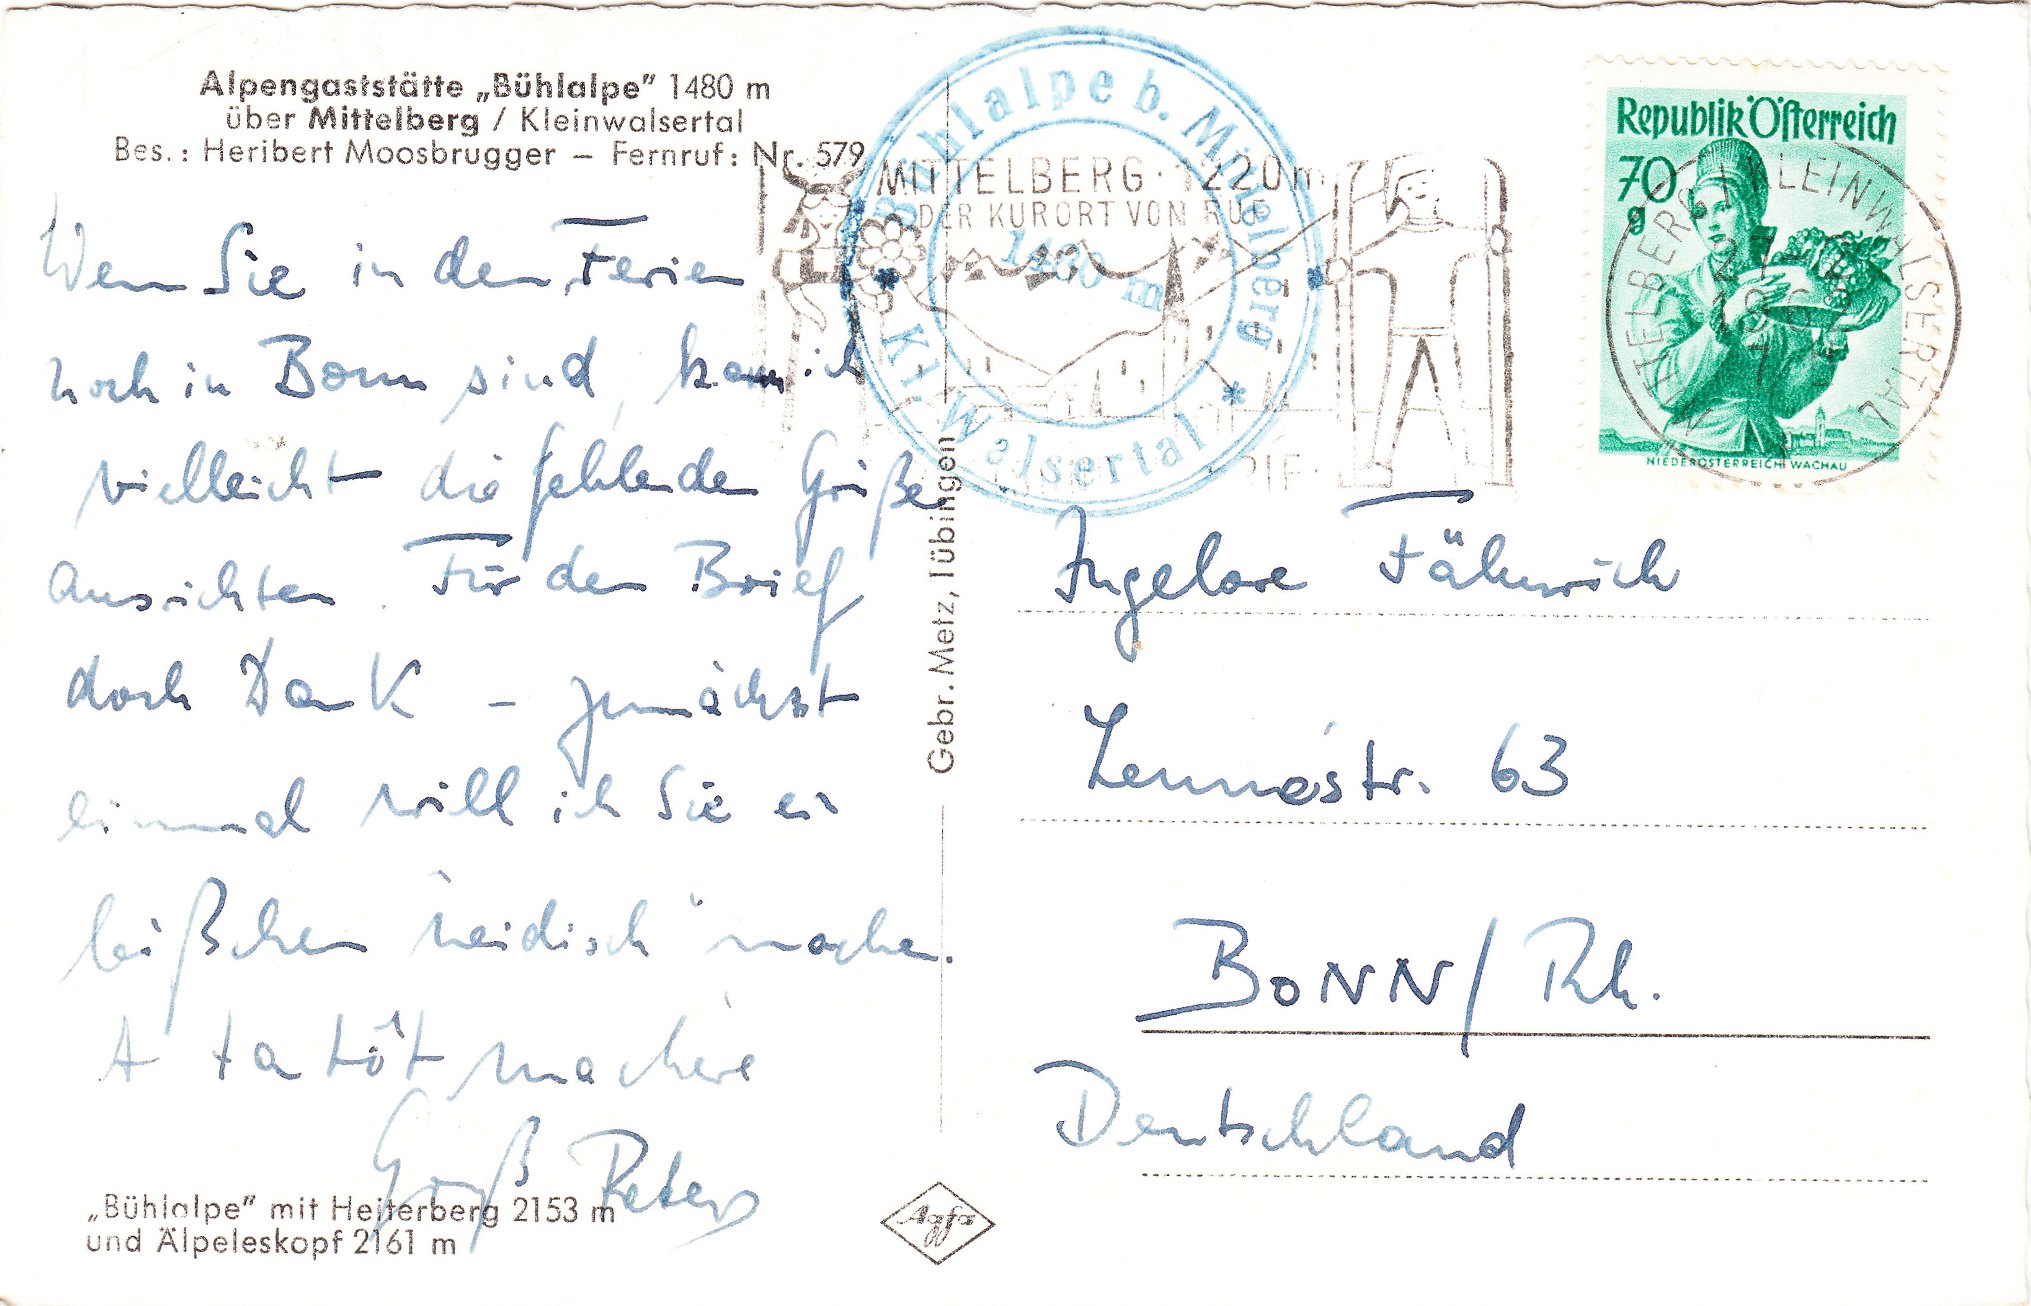 Alpengaststätte „Bühlalpe" 1480 m
über Mittelberg / Kleinwalsertal
Bes.: Heribert Moosbrugger – Fernruf: Nr. 579
Wenn Sie in den Ferien
noch in Bonn sind, kann ich
vielleicht die fehlenden Grüße
ausrichten. Für den Brief
doch Dank – zunächst
einmal will ich Sie ein
bißchen "neidisch" machen.
A tantôt machère
Gruß Peters
„Bühlalpe" mit Heiterberg 2153 m
und Älpeleskopf 2161 m
Gebr. Metz, Tübingen
Agfa
Bühlalpe b. Mittelberg
1480 m
* Kl. Walsertal *
MITTELBERG · 1220 m
DER KURORT VON RUF
Republik Österreich
70 g
NIEDERÖSTERREICH, WACHAU
MITTELBERG, KLEINWALSERTAL
Ingelore Fähnrich
Lennéstr. 63
BONN/Rh.
Deutschland